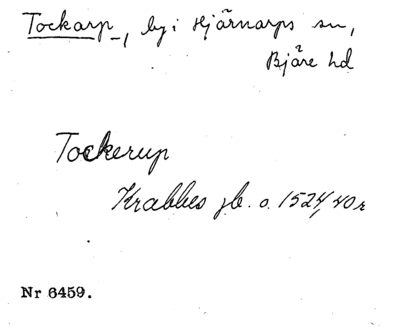 Tockarp, by i Hjärnarps sn,
Bjäre hd
Tockerup
Krabbes jb. o. 1524, 40 r
Nr 6459.